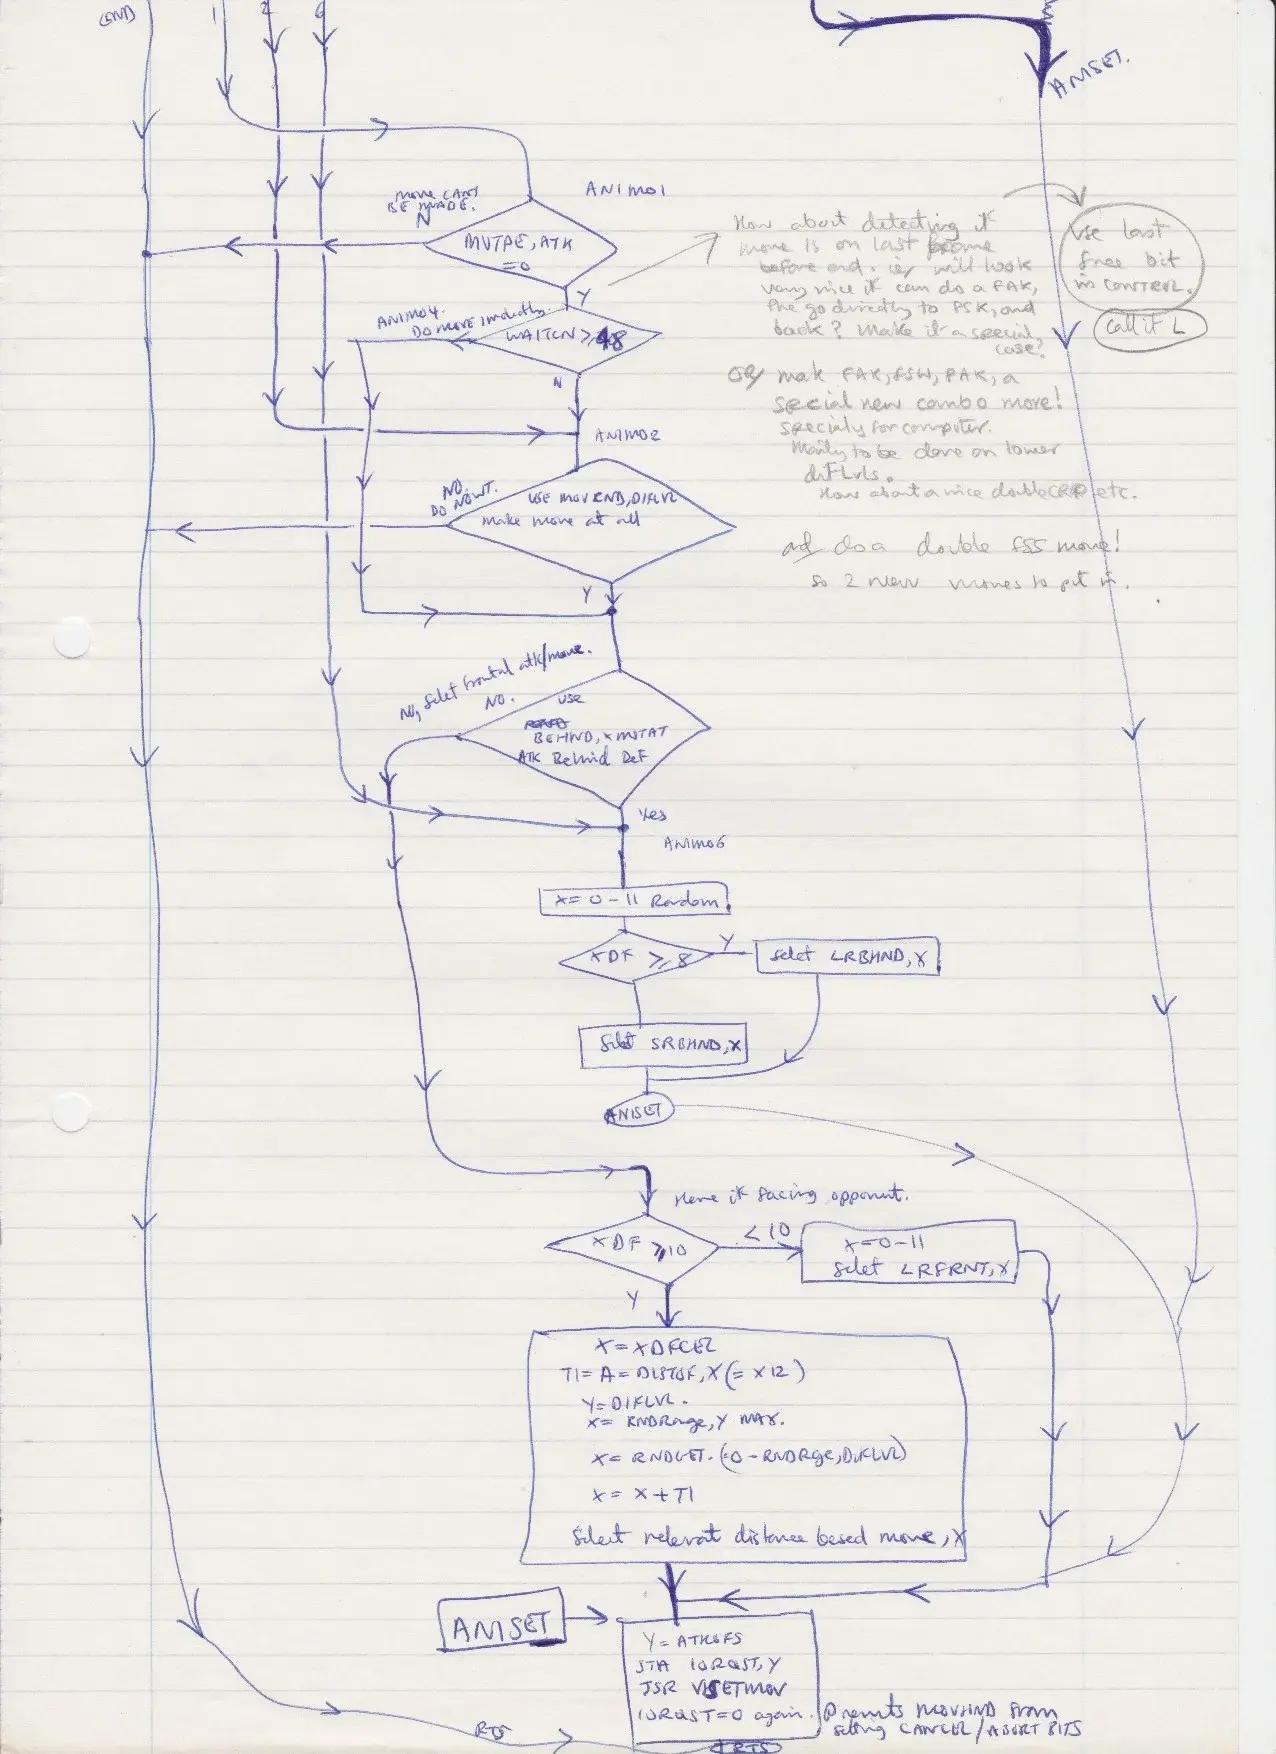 (END)
1
2
ANISET.
ANIMO1
MOVE CANT
BE MADE.
N
MVTPE, ATK
=0
Y
How about detecting if
move is on last frame
before end. ie, will look
very nice if can do a FAK,
the go directly to FSK, and
back? Make it a special
case?
Use last
free bit
in CONTROL.
Call it L
ANIMO4.
DO MOVE imedietly.
WAITCN ≥ 48
N
OR/ mak FAK, FSW, FAK, a
special new combo move!
specialy for computer.
Mainly to be done on lower
difLvls.
How about a nice double CRP etc.
ANIMO2
NO.
DO NOWT.
USE MOVRND, DIFLVL
make move at all
Y
and do a double FSS move!
so 2 new moves to put in.
NO, Select frontal atk/move.
NO.
USE
BEHIND, XMVTAT
ATK Behind Def
Yes
ANIMO6
X= 0-11 Random
XDF ≥ 8
Y
Select LRBHND, X
Select SRBHND, X
ANISET
Here if facing opponent.
XDF ≥ 10
< 10
X=0-11
Select LRFRNT, X
Y
X= XDFCER
T1= A= DISTOF, X (= X12)
Y= DIFLVL.
X= RNDRnge, Y MAX.
X= RNDGET. (=0-RNDRge, DIFLVL)
X= X+T1
Select relevat distance based move, X
ANISET
Y= ATKOFS
STA IORQST, Y
JSR VSETMOV
IORQST=0 again.
Prevents MOVHND from
setting CANCEL/ABORT BITS
RTS
RTS